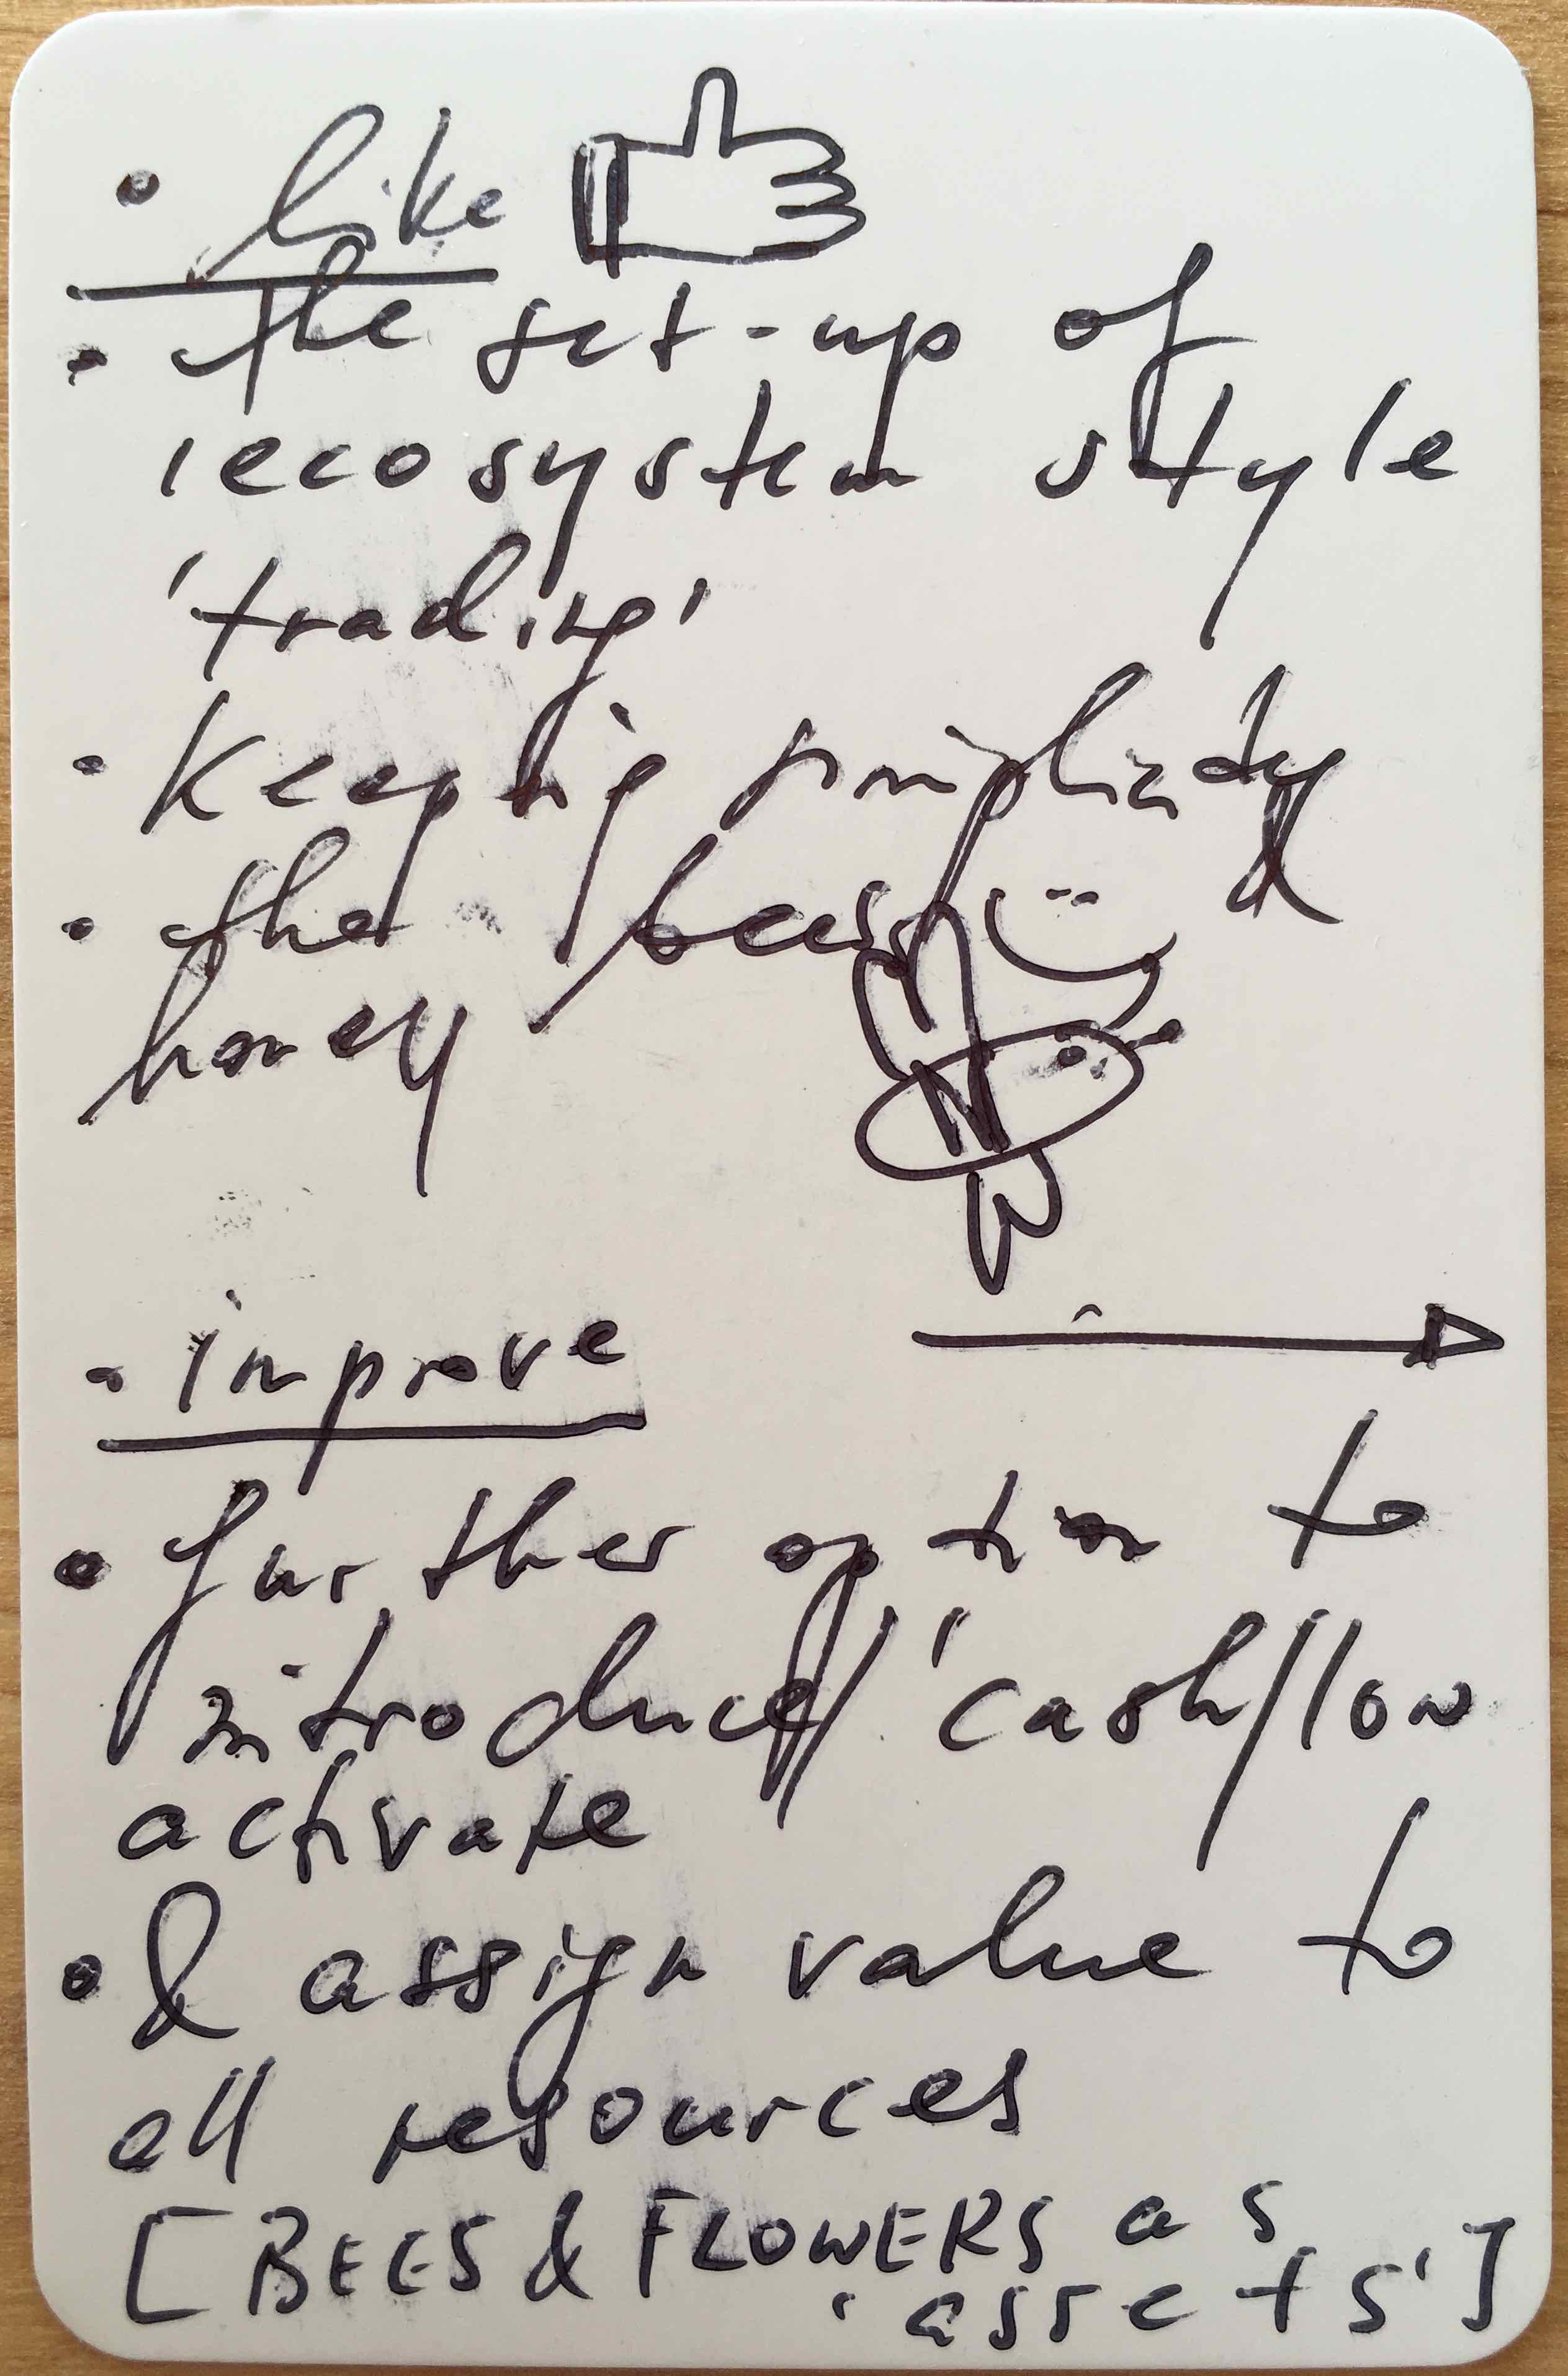 • like
• the set-up of
'ecosystem style
'trading'
• keeping simplicity
&
• the bees
honey
• improve
• further option to
introduce // 'cashflow
activate
• & assign value to
all resources
[BEES & FLOWERS as
'assets']